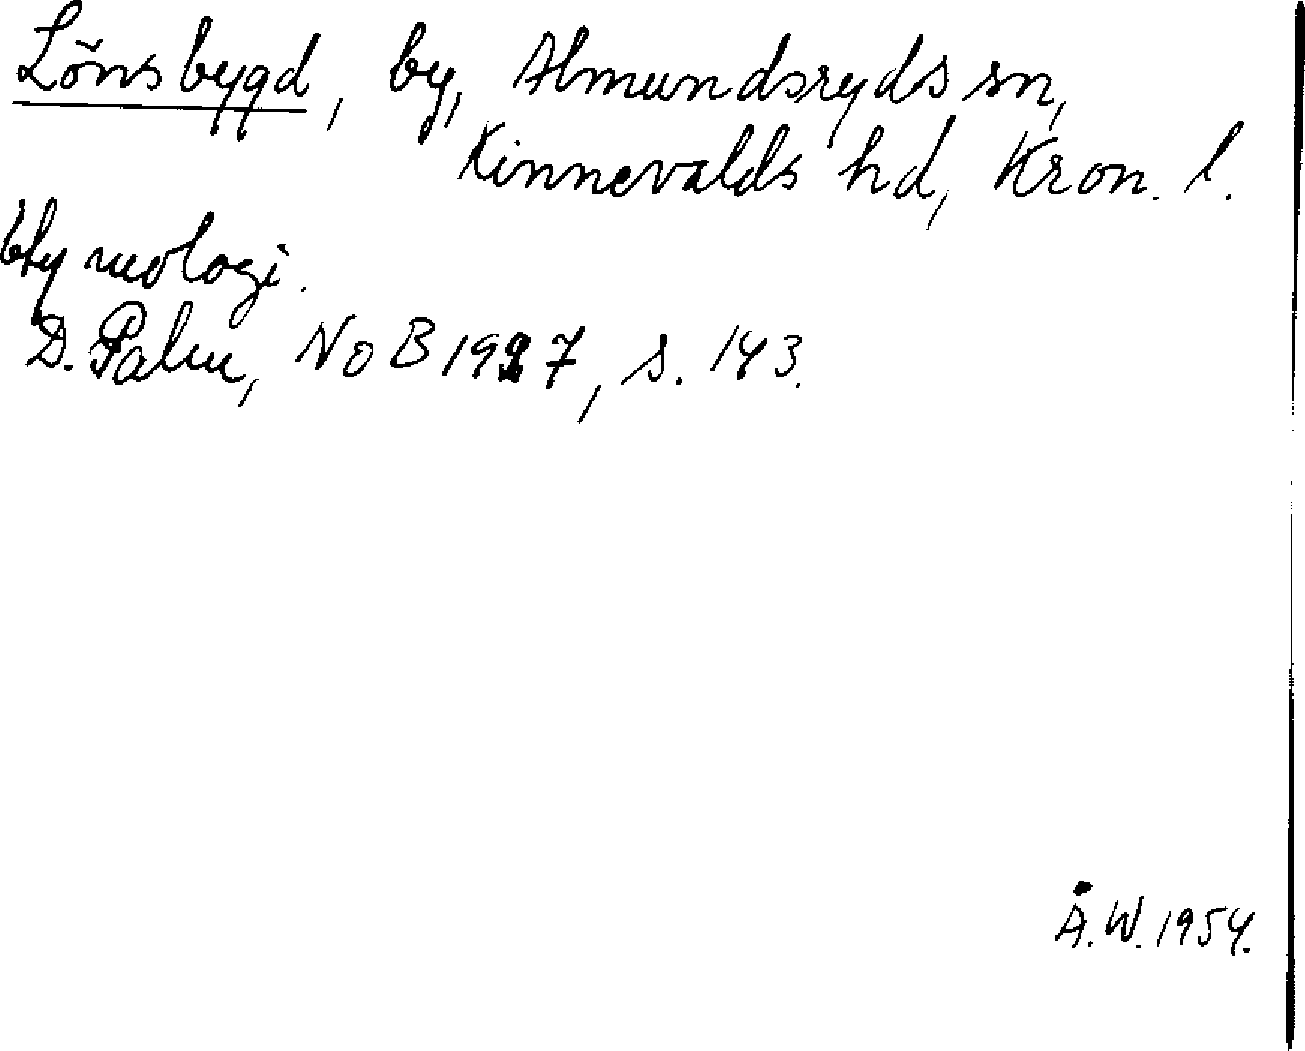 Lönsbygd, by, Almundsryds sn,
Kinnevalds hd, Kron. l.
Etymologi.
D. Palm, NoB 1927, s. 143.
Å.W. 1954.